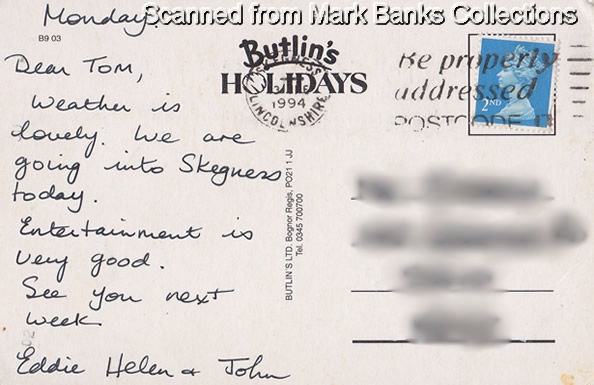 Scanned from Mark Banks Collections
Monday.
B9 03
Dear Tom,
Weather is
lovely. We are
going into Skegness
today.
Entertainment is
very good.
See you next
week
Eddie Helen & John
Butlin's
HOLIDAYS
SKEGNESS
1994
LINCOLNSHIRE
Be properly
addressed
POSTCODE IT
2ND
BUTLIN'S LTD. Bognor Regis, PO21 1JJ
Tel. 0345 700700